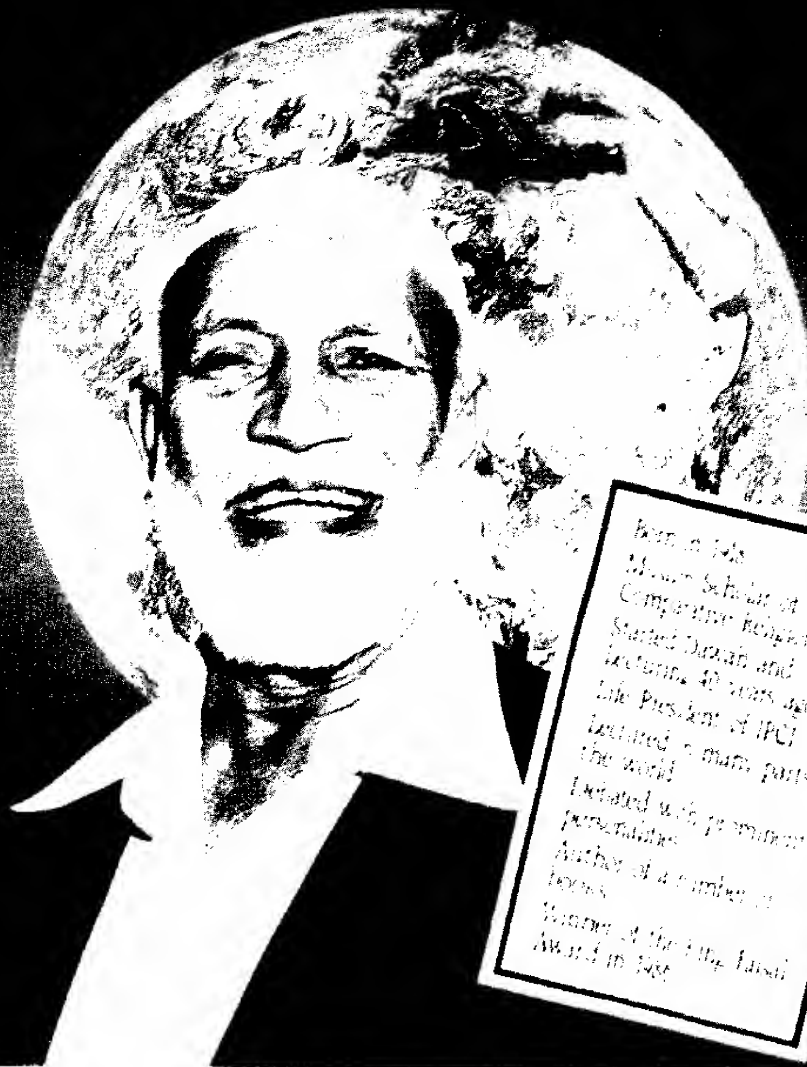 Born in 1918
Muslim Scholar of
Comparative Religion
Started Dawah and
lecturing 40 years ago
Life President of IPCI
Lectured in many parts
the world
Debated with prominent
personalities
Author of a number of
books
Winner of the King Faisal
Award in 1986